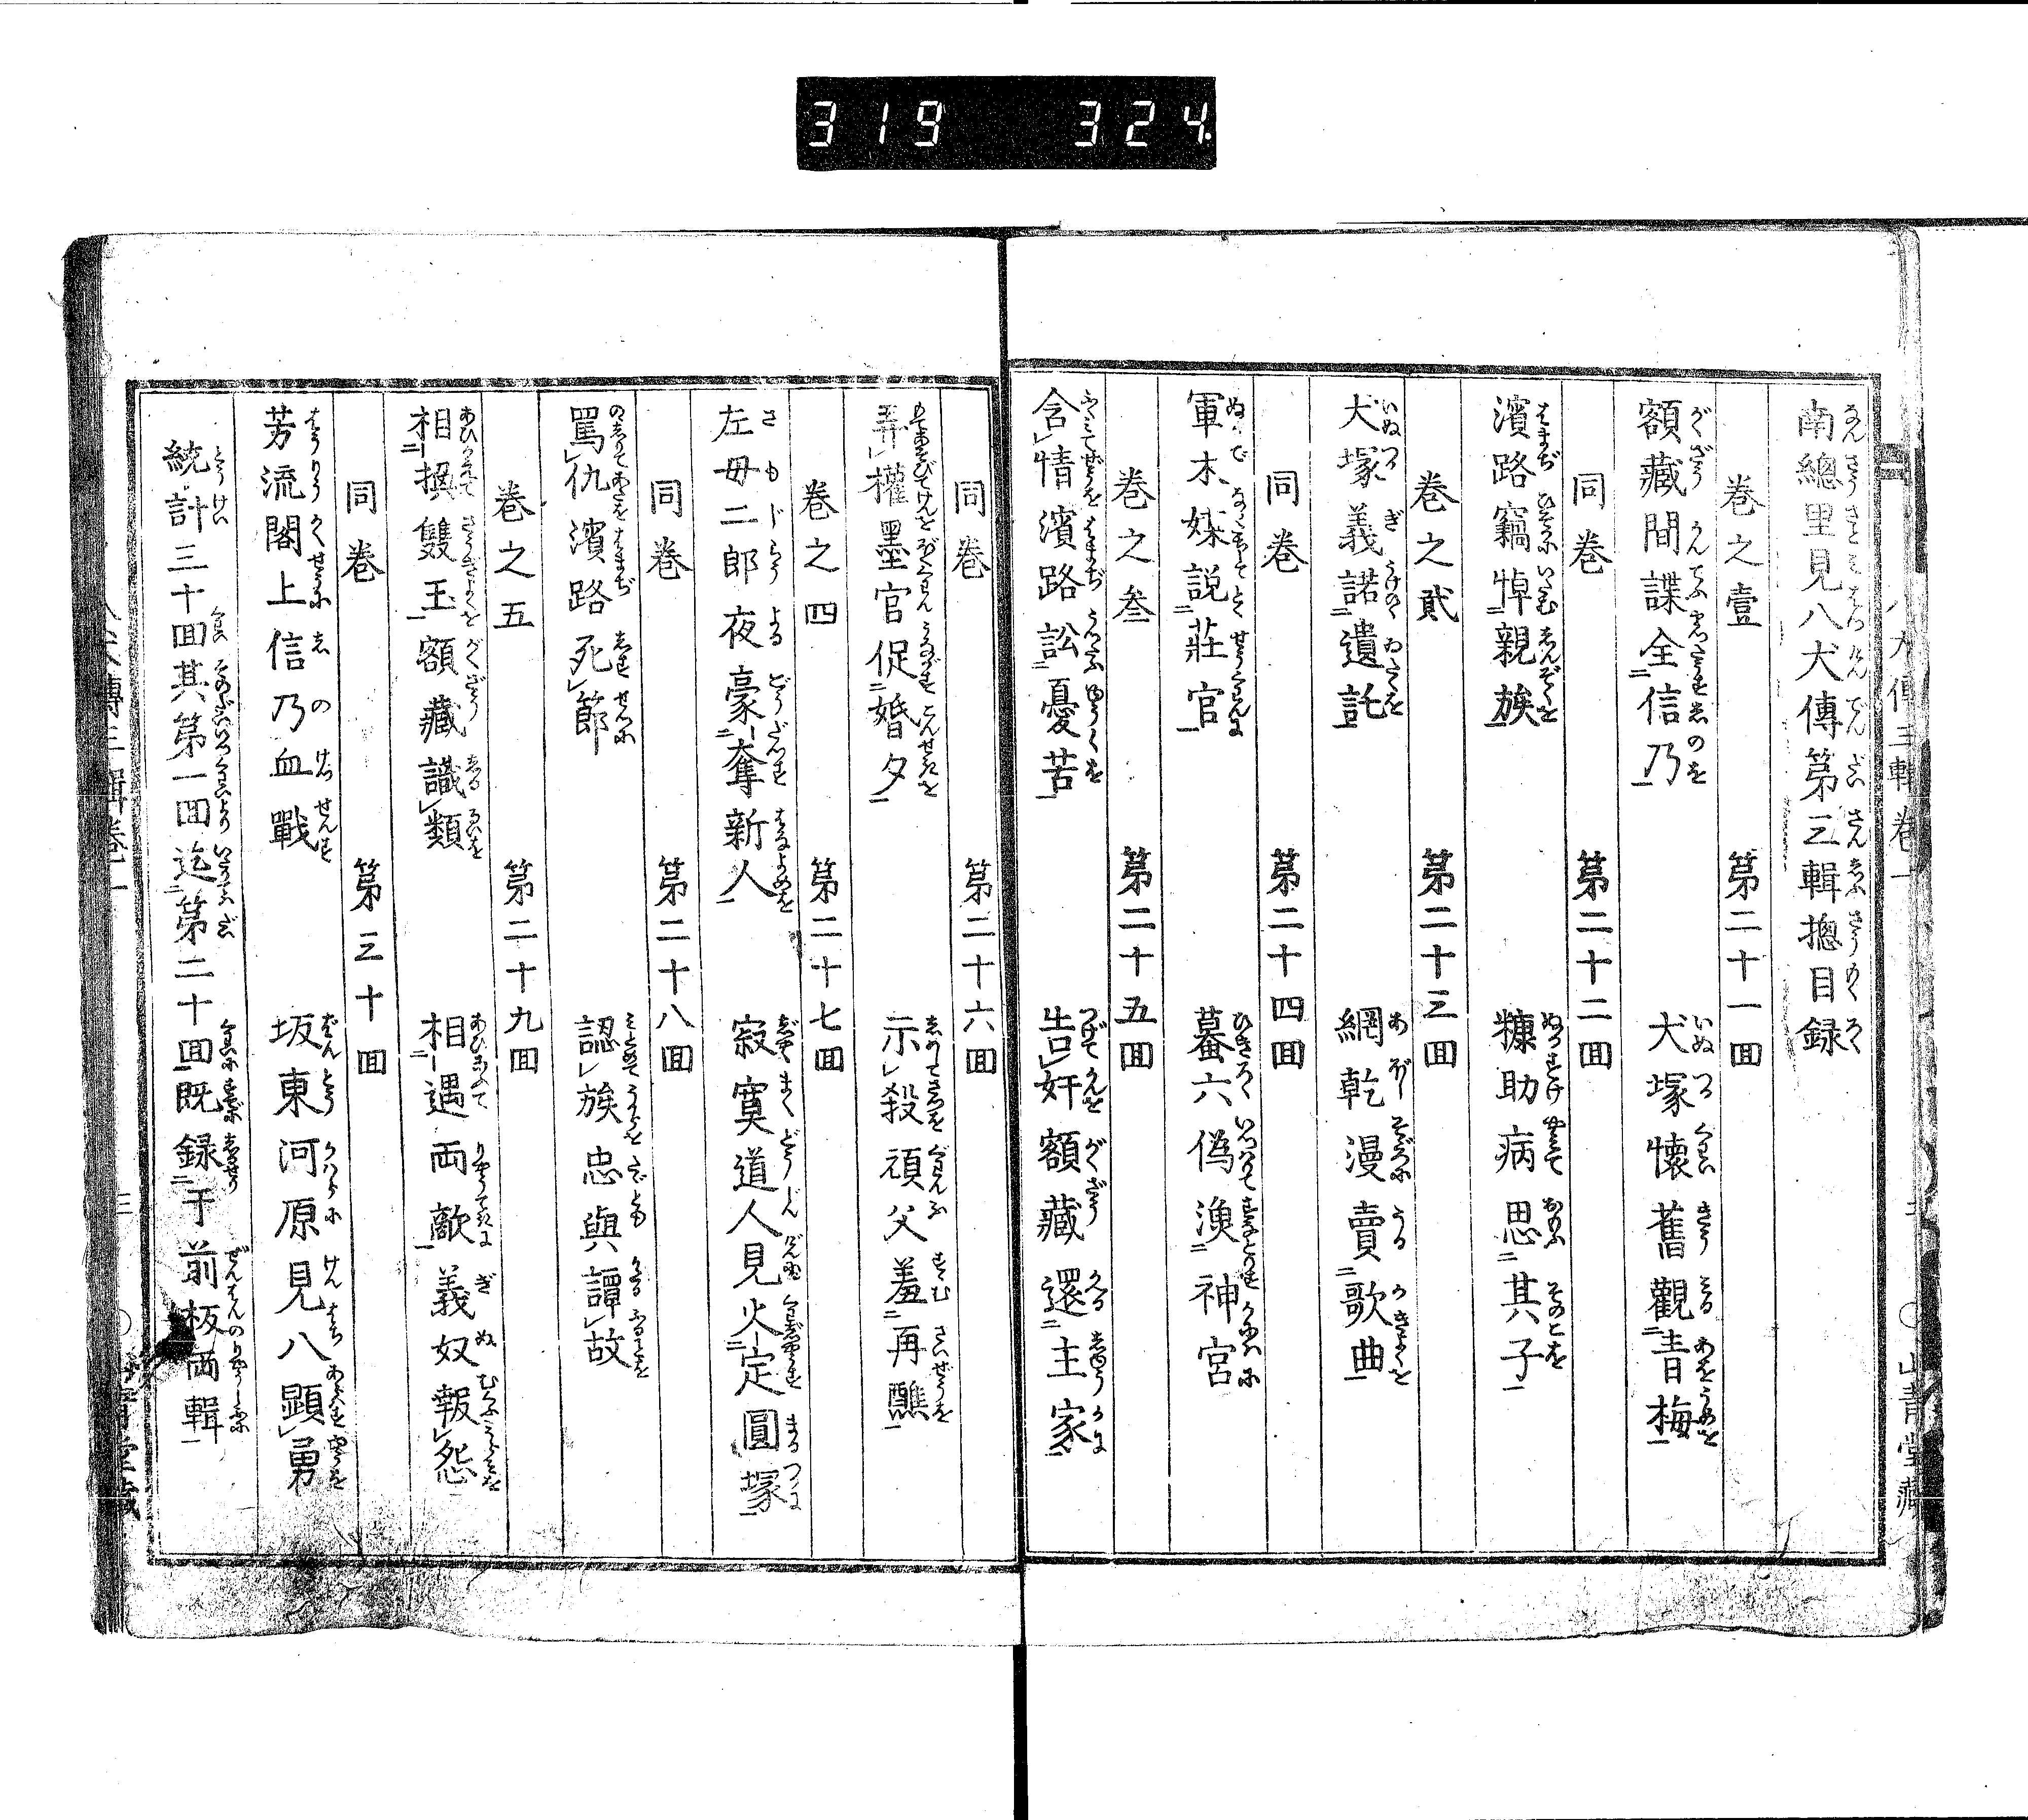 319 324
南總里見八犬傳第三輯揔目録
巻之壹 第二十一回
額藏間諜全信乃 犬塚懷舊觀青梅
同巻 第二十二回
濱路竊悼親族 糠助病思其子
巻之貳 第二十三回
犬塚義諾遺託 網乾漫賣歌曲
同巻 第二十四回
軍木媒説莊官 蟇六偽漁神宮
巻之叄 第二十五回
含情濱路訟憂苦 告奸額藏還主家
同巻 第二十六回
弄權墨官促婚夕 示殺頑父羞再醮
巻之四 第二十七回
左母二郎夜豪奪新人 寂寞道人見火定圓塚
同巻 第二十八回
罵仇濱路死節 認族忠與譚故
巻之五 第二十九回
相換雙玉額藏識類 相遇両敵義奴報怨
同巻 第三十回
芳流閣上信乃血戰 坂東河原見八顕勇
統計三十回其第一回迄第二十回既録于前板両輯
八犬傳三輯巻一 三 山青堂藏